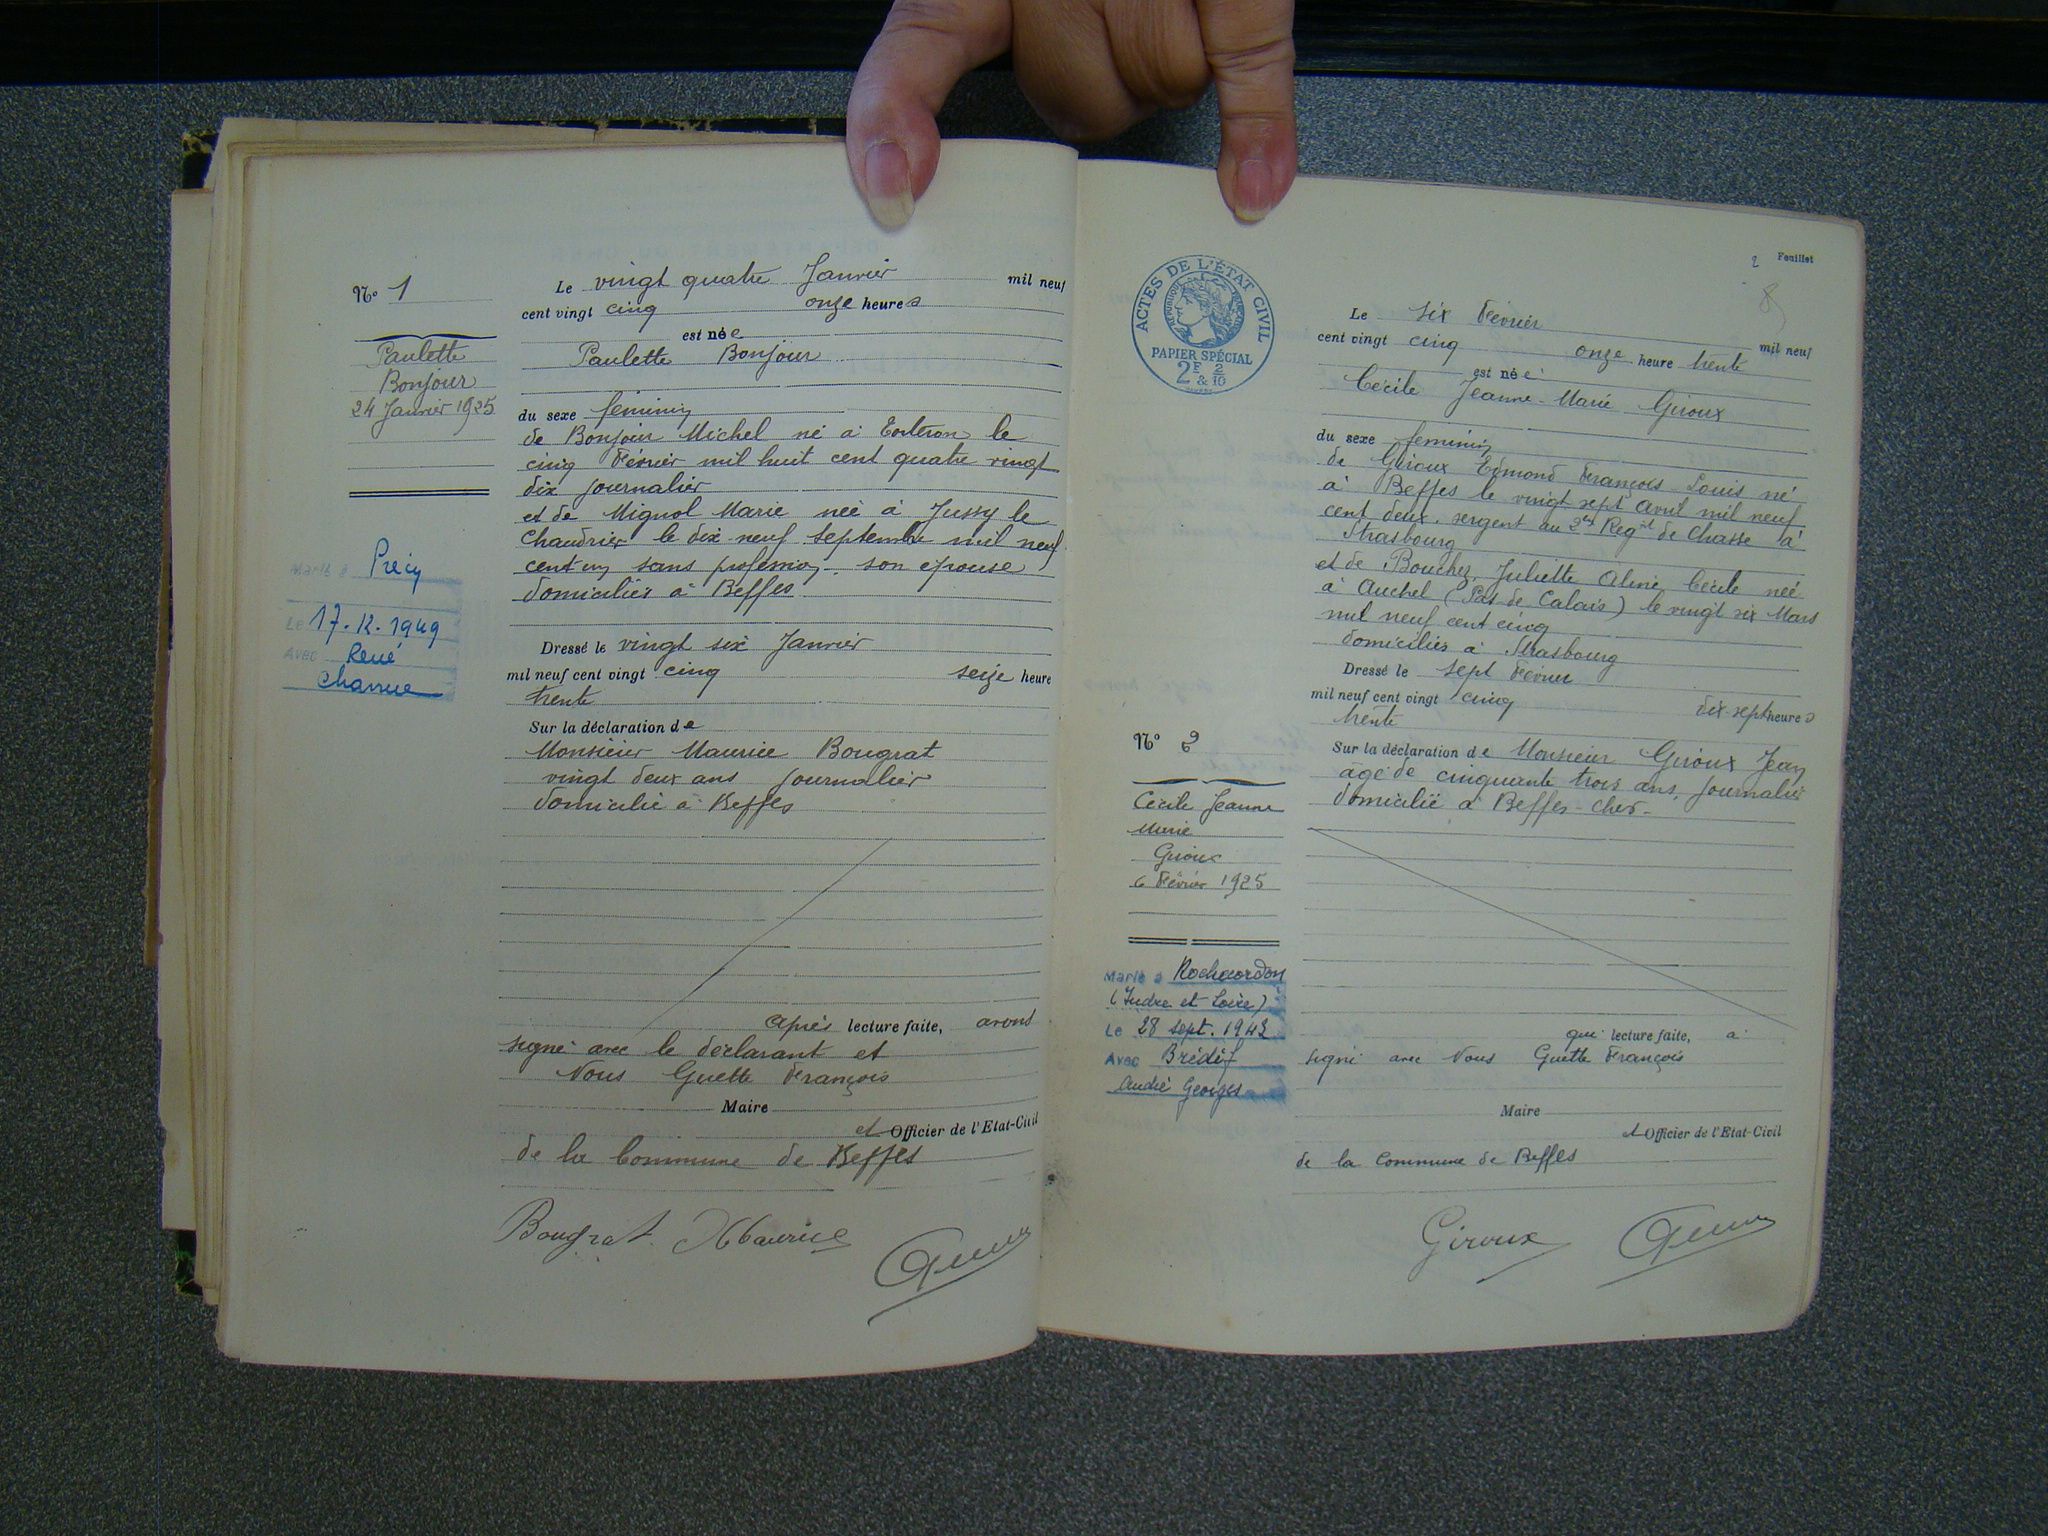 N° 1
Paulette
Bonjour
24 Janvier 1925
Marié à Précy
Le 17.12.1949
Avec René
Charrue
Le vingt quatre Janvier mil neuf
cent vingt cinq onze heures
est née
Paulette Bonjour
du sexe féminin
de Bonjour Michel né à Torteron le
cinq Février mil huit cent quatre vingt
dix journalier
et de Mignol Marie née à Jussy le
Chaudrier le dix-neuf septembre mil neuf
cent un sans profession, son épouse
domiciliés à Beffes
Dressé le vingt six Janvier
mil neuf cent vingt cinq seize heure
trente
Sur la déclaration de
Monsieur Maurice Bougrat
vingt deux ans journalier
domicilié à Beffes
après lecture faite, avons
signé avec le déclarant et
Nous Guette François
Maire
et Officier de l'Etat-Civil
de la Commune de Beffes
Bougrat Maurice
2 Feuillet
8
ACTES DE L'ÉTAT CIVIL
RÉPUBLIQUE FRANÇAISE
PAPIER SPÉCIAL
2F & 2/10
N° 2
Cécile Jeanne
Marie
Giroux
6 Février 1925
Marié à Rochecordon
(Indre et Loire)
Le 28 sept. 1942
Avec Brédif
André Georges
Le six Février mil neuf
cent vingt cinq onze heure trente
est née
Cécile Jeanne-Marie Giroux
du sexe féminin
de Giroux Edmond François Louis né
à Beffes le vingt-sept Avril mil neuf
cent deux, sergent au 2e Regnt de Chasse à
Strasbourg
et de Bouchez, Juliette Aline Cécile née
à Auchel (Pas de Calais) le vingt six Mars
mil neuf cent cinq
domiciliés à Strasbourg
Dressé le sept Février
mil neuf cent vingt cinq dix-sept heures
trente
Sur la déclaration de Monsieur Giroux Jean
âgé de cinquante trois ans, journalier
domicilié à Beffes-Cher-
qui lecture faite, a
signé avec Nous Guette François
Maire
et Officier de l'Etat-Civil
de la Commune de Beffes
Giroux